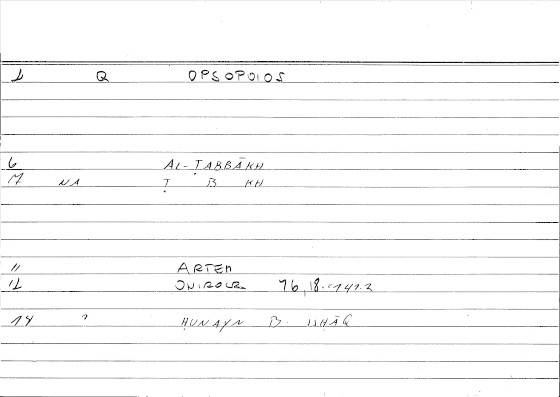 1 Q OPSOPOIOS
6 AL-ṬABBĀKH
7 NA Ṭ B KH
11 ARTEM
12 ONIROCR 76,18
14 ? ḤUNAYN B. ISḤĀQ